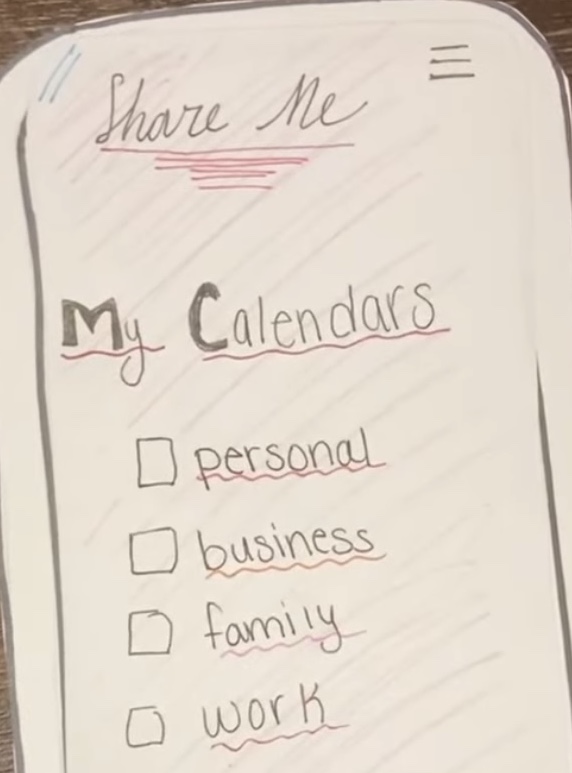 Share Me
My Calendars
personal
business
family
work